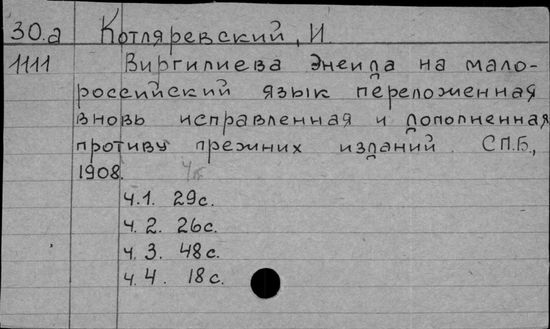 30.а Котляревский, И.
1111 Виргилиева Энеида на мало-
российский язык переложенная
вновь исправленная и дополненная
противу прежних изданий. С.П.Б.,
1908.
ч.1. 29с.
ч. 2. 26с.
ч. 3. 48с.
ч. 4. 18с.